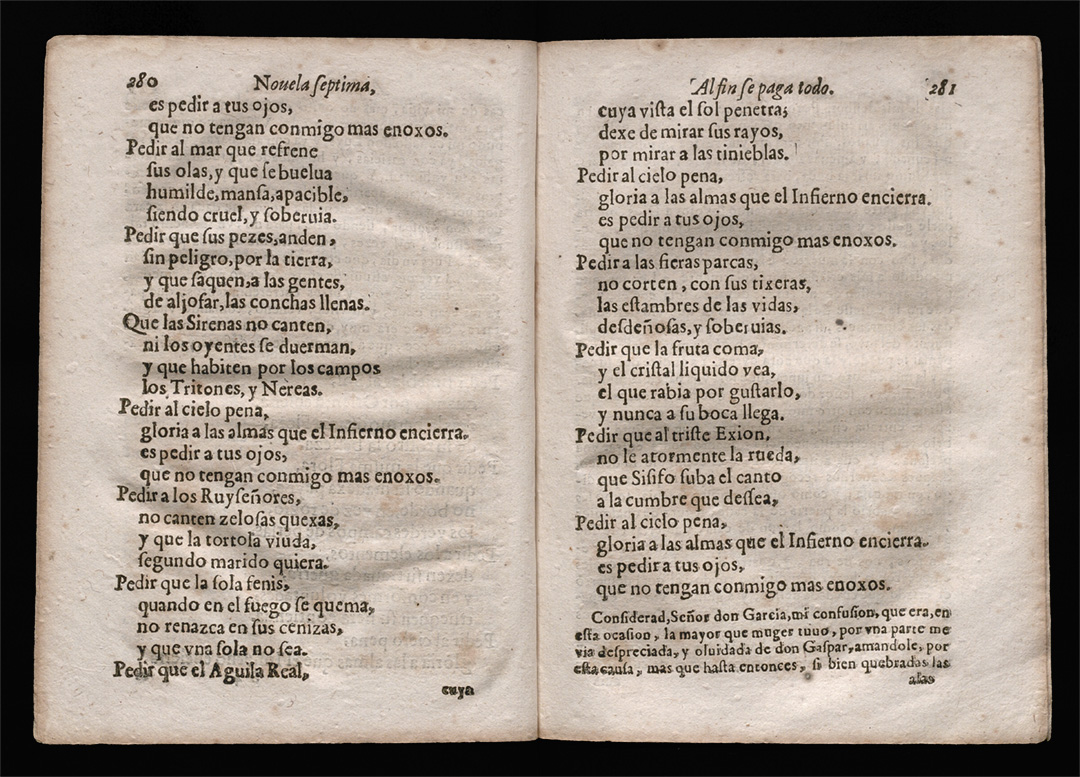 280 Nouela septima,
es pedir a tus ojos,
que no tengan conmigo mas enoxos.
Pedir al mar que refrene
sus olas, y que se buelua
humilde, mansa, apacible,
siendo cruel, y soberuia.
Pedir que sus pezes, anden,
sin peligro, por la tierra,
y que saquen, a las gentes,
de aljofar, las conchas llenas.
Que las Sirenas no canten,
ni los oyentes se duerman,
y que habiten por los campos
los Tritones, y Nereas.
Pedir al cielo pena,
gloria a las almas que el Infierno encierra.
es pedir a tus ojos,
que no tengan conmigo mas enoxos.
Pedir a los Ruyseñores,
no canten zelosas quexas,
y que la tortola viuda,
segundo marido quiera.
Pedir que la sola fenis,
quando en el fuego se quema,
no renazca en sus cenizas,
y que vna sola no sea.
Pedir que el Aguila Real,
cuya
Al fin se paga todo. 281
cuya vista el sol penetra;
dexe de mirar sus rayos,
por mirar a las tinieblas.
Pedir al cielo pena,
gloria a las almas que el Infierno encierra.
es pedir a tus ojos,
que no tengan conmigo mas enoxos.
Pedir a las fieras parcas,
no corten, con sus tixeras,
las estambres de las vidas,
desdeñosas, y soberuias.
Pedir que la fruta coma,
y el cristal liquido vea,
el que rabia por gustarlo,
y nunca a su boca llega.
Pedir que al triste Exion,
no le atormente la rueda,
que Sisifo suba el canto
a la cumbre que dessea,
Pedir al cielo pena,
gloria a las almas que el Infierno encierra.
es pedir a tus ojos,
que no tengan conmigo mas enoxos.
Considerad, Señor don Garcia, mi confusion, que era, en
esta ocasion, la mayor que muger tuuo, por vna parte me
via despreciada, y oluidada de don Gaspar, amandole, por
esta causa, mas que hasta entonces, si bien quebradas las
alas